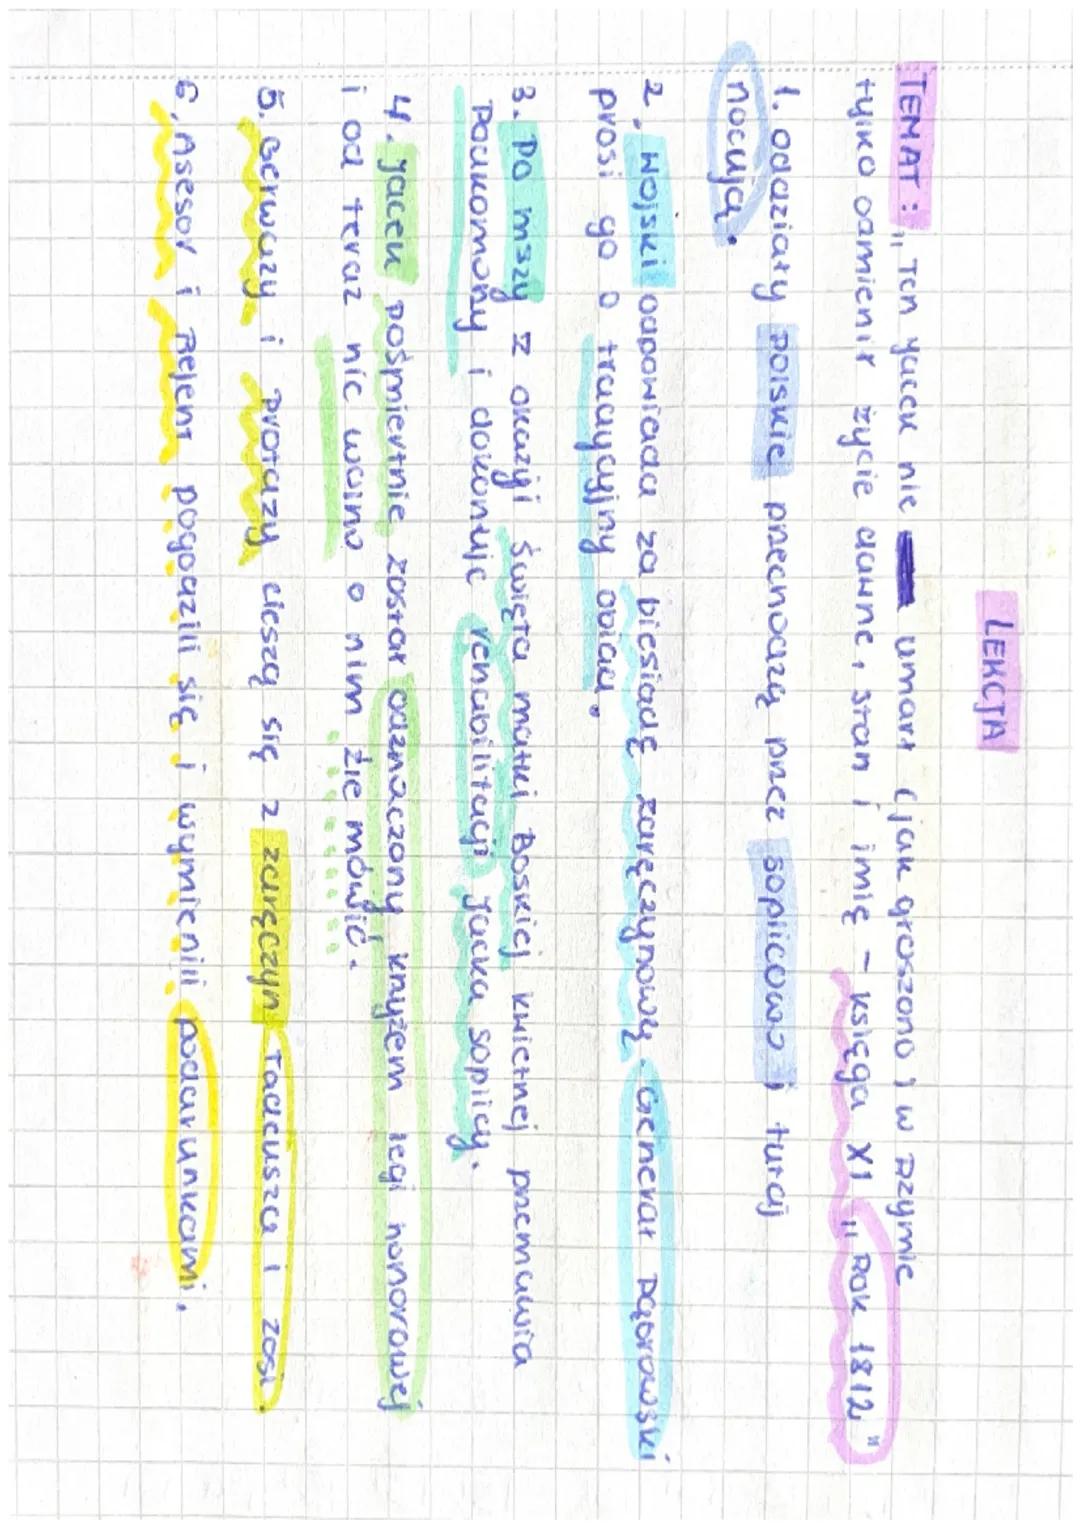 LEKCJA
TEMAT: „Ten Jacek nie umarł (jak głoszono) w Rzymie
tylko odmienił życie dawne, stan i imię - księga XI „Rok 1812"
1. oddziały polskie przechodzą przez Soplicowo i tutaj
nocują.
2. Wojski odpowiada za biesiadę zaręczynową. Generał Dąbrowski
prosi go o tradycyjny obiad.
3. Po mszy z okazji święta matki Boskiej kwietnej przemawia
Podkomorzy i dokonuje rehabilitacji Jacka Soplicy.
4. Jacek pośmiertnie został odznaczony krzyżem legi honorowej
i od teraz nic wolno o nim źle mówić.
5. Gerwazy i Protazy cieszą się z zaręczyn Tadeusza i Zosi.
6. Asesor i Rejent pogodzili się i wymienili podarunkami.